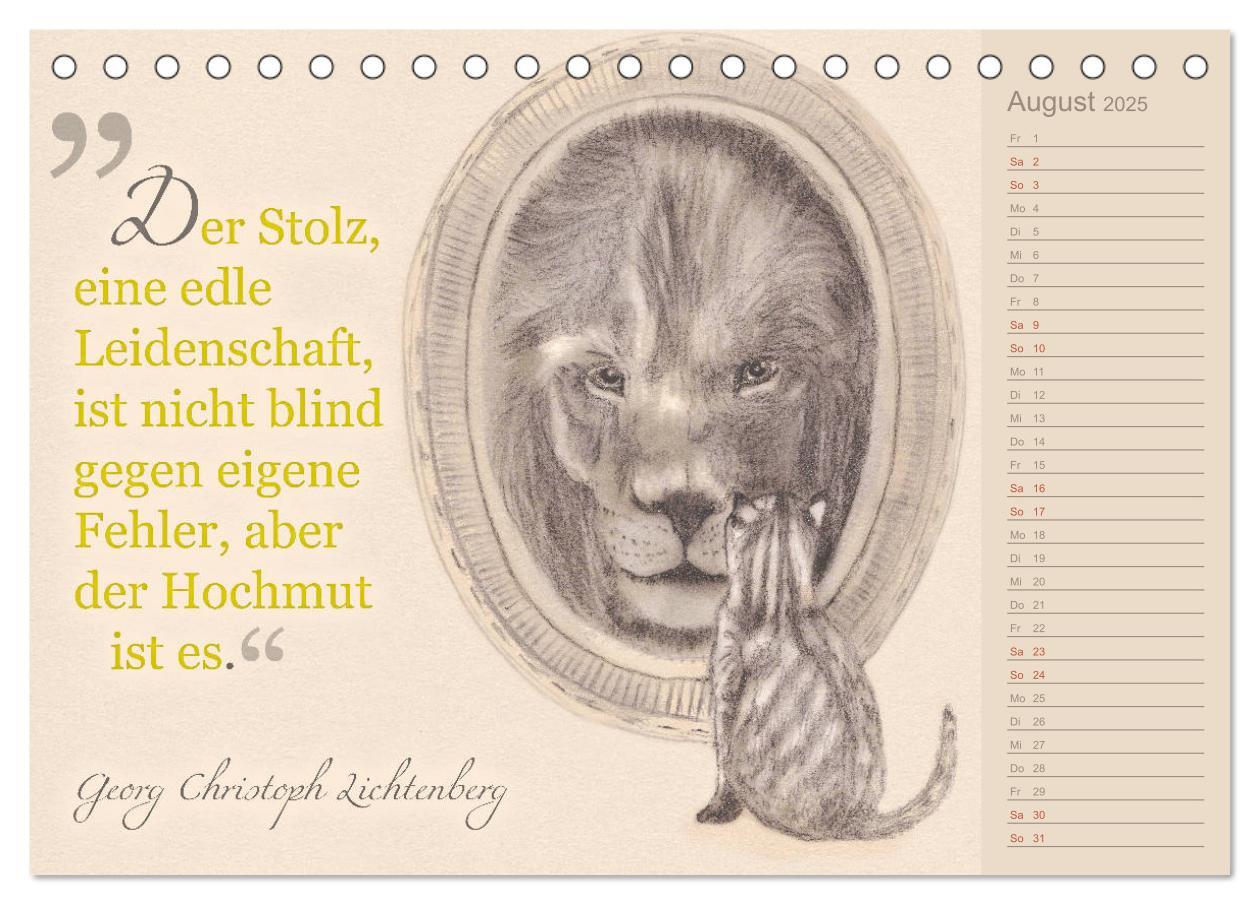 ”Der Stolz,
eine edle
Leidenschaft,
ist nicht blind
gegen eigene
Fehler, aber
der Hochmut
ist es.“
Georg Christoph Lichtenberg
August 2025
Fr 1
Sa 2
So 3
Mo 4
Di 5
Mi 6
Do 7
Fr 8
Sa 9
So 10
Mo 11
Di 12
Mi 13
Do 14
Fr 15
Sa 16
So 17
Mo 18
Di 19
Mi 20
Do 21
Fr 22
Sa 23
So 24
Mo 25
Di 26
Mi 27
Do 28
Fr 29
Sa 30
So 31